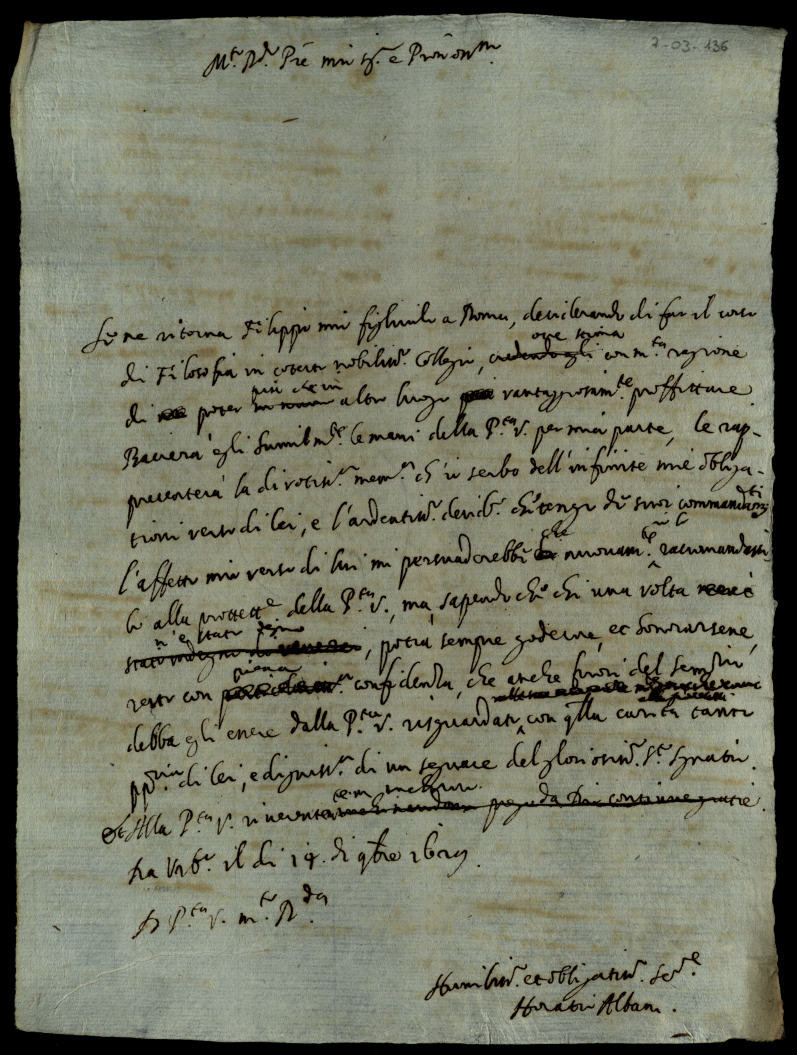 7-03-136
M.to R.do Prē mio sig.r e Prōn oss.mo
Se ne ritorna Filippo mio figliuolo a Roma, desiderando di far il corso
di Filosofia in cotesto nobiliss.o Collegio, credendo egli con m.ta ragione
ove stima
di poter altro luogo vantaggiosam.te proffittare.
più che in
Bacierà egli humilm.te le mani della P.tà V. per mia parte, le rap-
presenterà la divotiss.a mem.a ch'io serbo dell'infinite mie obliga-
tioni verso di lei, e l'ardentiss.o desid.o che tengo de suoi commandi
l'affetto mio verso di lui mi persuaderebbe che nuovam.te raccomandassi
lo alla protett.e della P.tà V., ma sapendo che chi una volta
n'è stato
stato indegno di , potrà sempre goderne, et honorarsene,
resto con confidenza, che anche fuori del Semin.o
piena
debba egli essere dalla P.tà V. risguardato con q.lla carità tanto
pp.ria di lei, e digniss.a di un seguace del gloriosiss.o S.to Ignatio.
Et Alla P.tà V. prego da Dio continue gratie.
Da Urb.o il di 14. di 9bre 1629
D. P.tà V. m.to R.da
Humiliss.o et obligatiss.o Se.re
Horatio Albani.